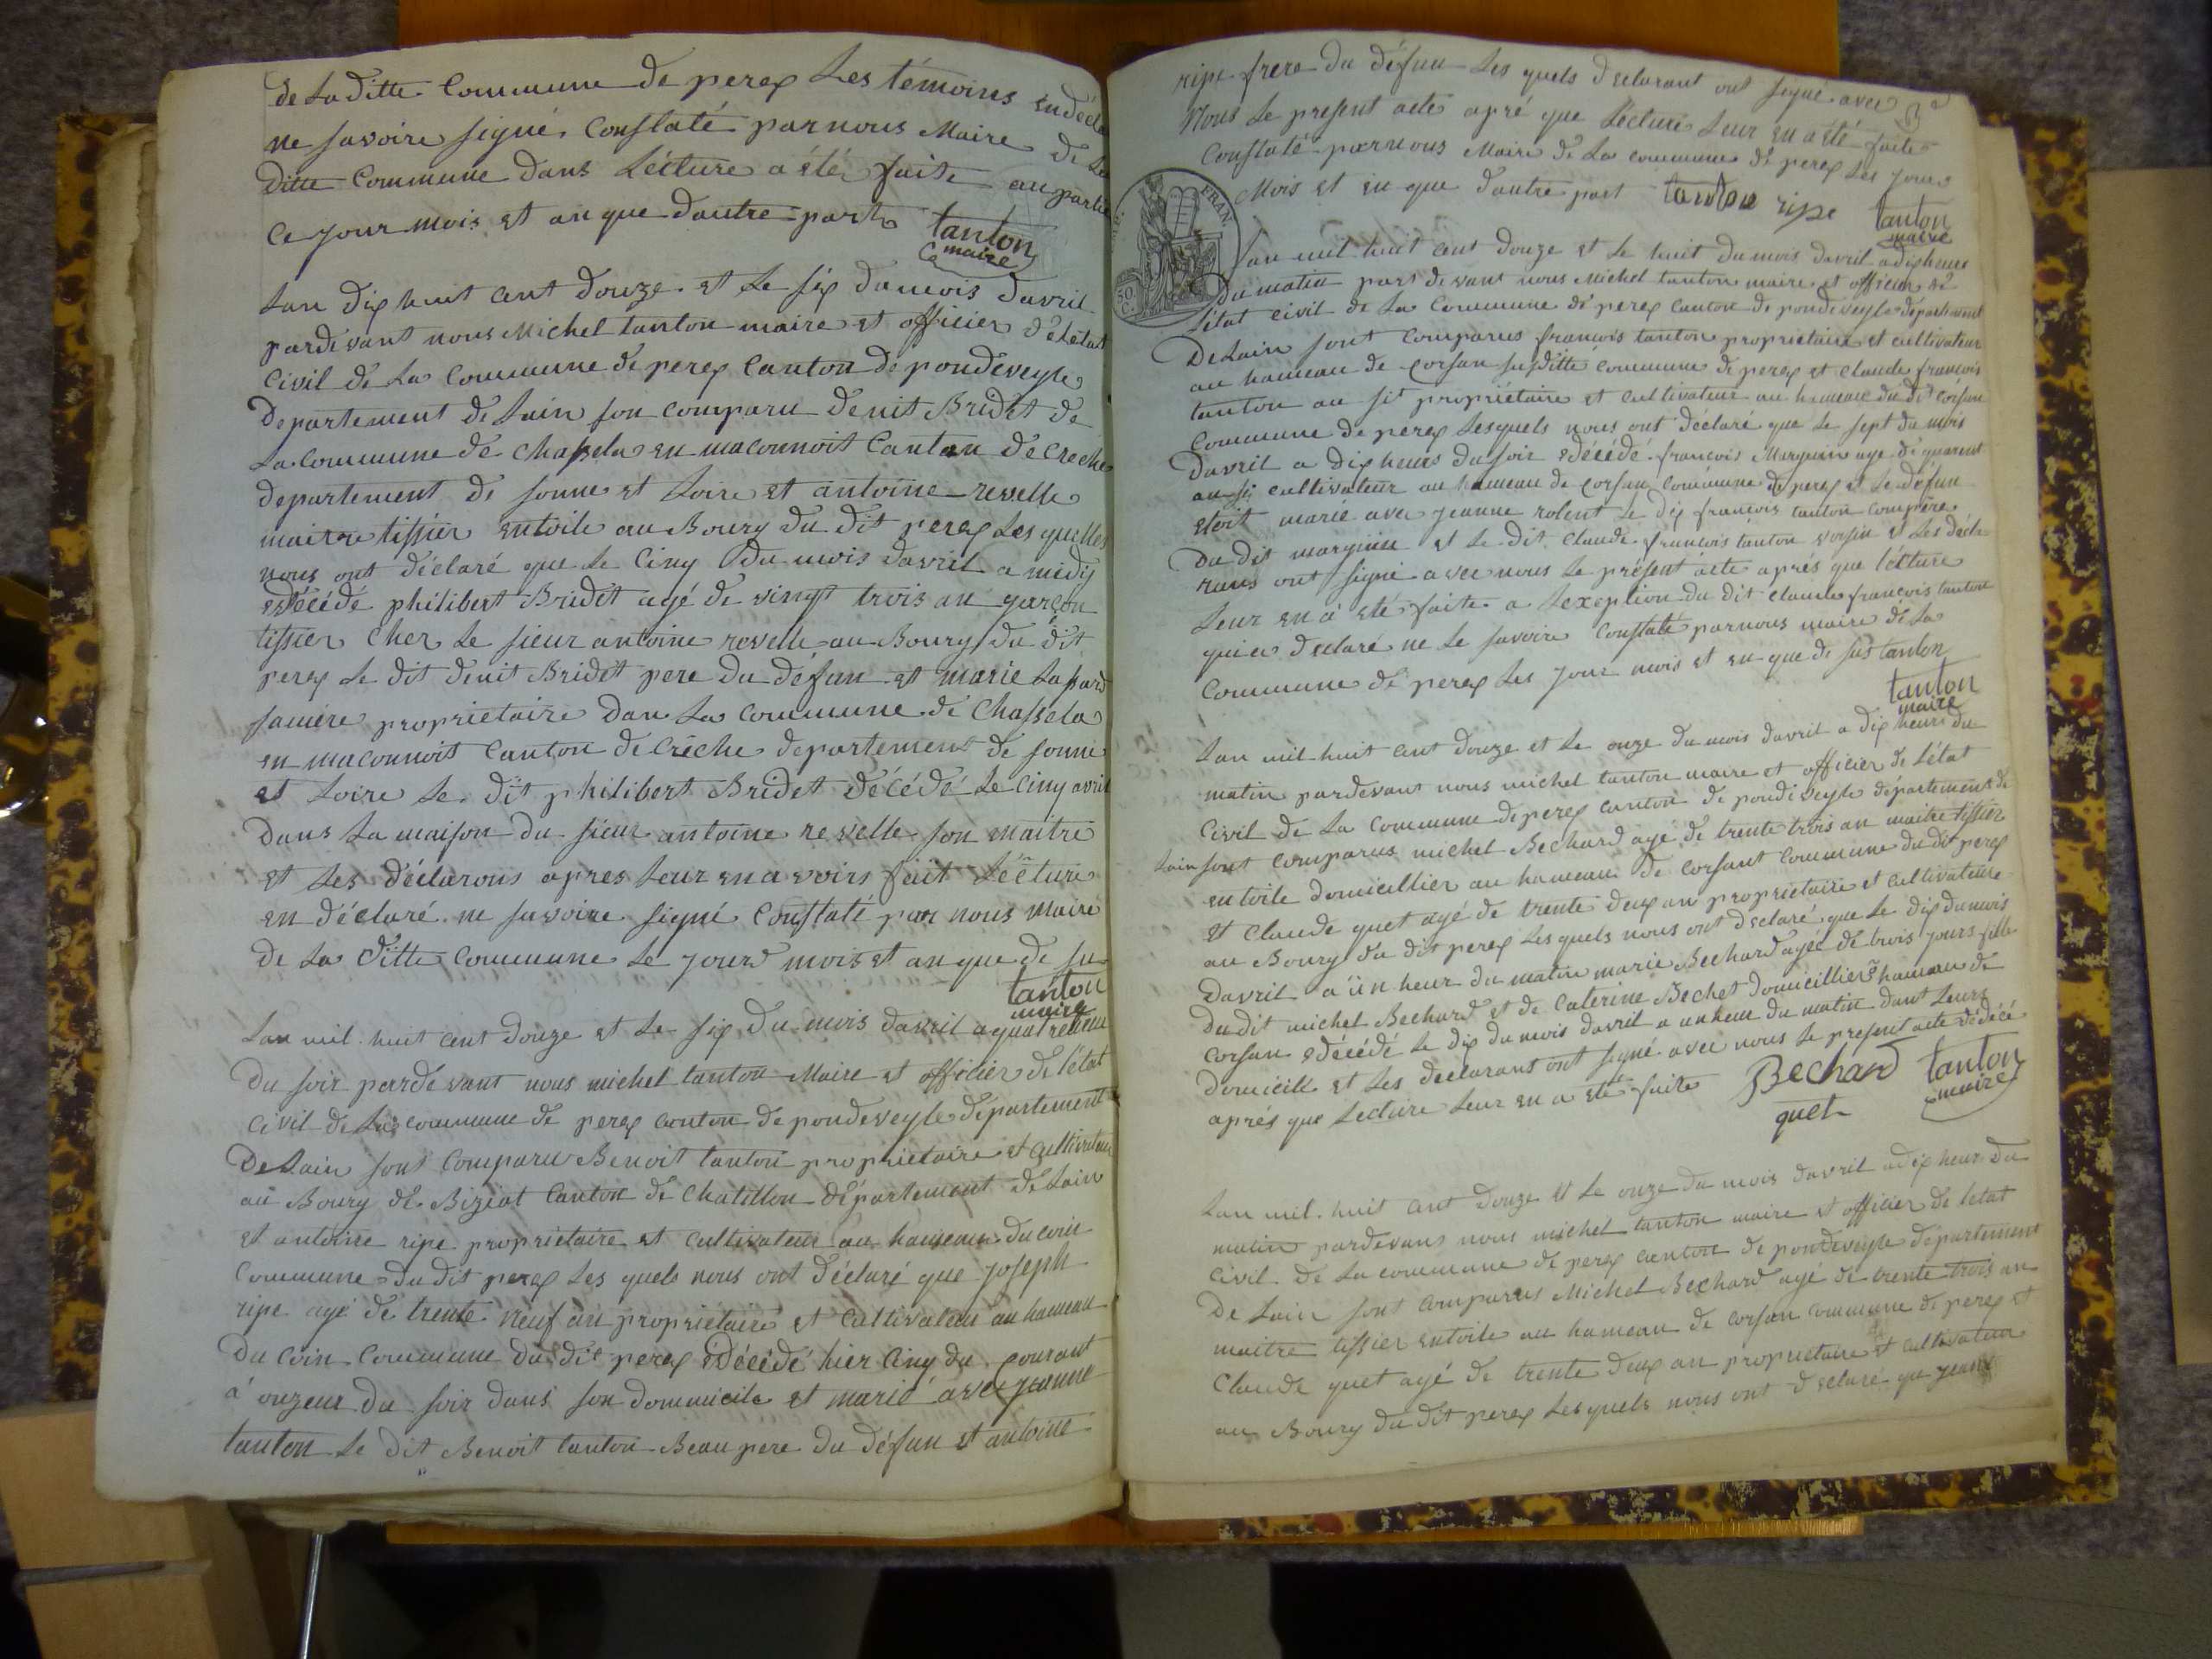 de la ditte Commune de perex Les témoins en décla
ne savoire signé. Constaté par nous Maire de la
ditte Commune dans Lécture a été faite au partie
Ce jour mois et an que dautre part tanton
maire
Lan dix huit cent douze et Le six du mois davril
pardevant nous Michel tanton maire et officier de Létat
Civil de La Commune de perex Canton de pondeveyle
Departement de Lain son comparu denit Bridet de
La Commune de Chassela en maconnoit Canton de Creche
departement de sonne et Loire et antoine revelle
maitre tissier entoile au Bourg du dit perex Les quelles
nous ont déclaré que Le Cinq du mois davril a midy
edécédé philibert Bridet agé de vingt trois an garçon
tissier Cher Le sieur antoine revelle au Bourg du dit
perex Le dit denit Bridet pere du defun et marie Lapard
samere proprietaire dan La Commune de Chassela
en maconnoit Canton de Crêche departement de sonne
et Loire Le dit philibert Bridet décédé Le Cinq avril
dans La maison du sieur antoine revelle son maitre
et Les déclarons apres Leur en avoirs fait Lécture
en déclaré ne savoire signé Constaté par nous maire
de La ditte Commune Le jour mois et an que de su
tanton
maire
Lan mil huit cent douze et Le six du mois davril a quatre heure
du soir pardevant nous michel tanton Maire et officier de Létat
Civil de La commune de perex canton de pondeveyle departement
De Lain sont Comparu Benoit tanton proprietaire et Cultivateur
au Bourg de Biziat Canton de Chatillon département de Lain
et antoine ripe proprietaire et Cultivateur au hameau du coin
Commune du dit perex Les quels nous ont déclaré que joseph
ripe agé de trente neuf an propriétaire et Cultivateur au hameau
du Coin Commune du dit perex edécédé hier Cinq du courant
a onzeur du soir dans son domicile et marié avec jeanne
tanton Le dit Benoit tanton Beau pere du défun et antoine
ripe frere du défun Les quels déclarant ont signé avec
Nous Le present acte apré que Lecture Leur en a été faite
Constaté par nous Maire de La commune de perex Les jour
Mois et en que dautre part tanton ripe tanton
maire
FRAN.
50
C.
Lan mil huit cent douze et Le huit du mois davril a dix heure
du matin pardevant nous Michel tanton maire et officier de
Létat civil de La Commune de perex canton de pondeveyle departement
De Lain sont comparus francois tanton propriétaire et cultivateur
au hameau de corsan susditte commune de perex et claude francois
tanton au sit propriétaire et cultivateur au hameau du dit corsan
Commune de perex Lesquels nous ont déclaré que Le sept du mois
Davril a dix heurs du soir edécédé francois Marguin age de quarent
an si cultivateur au hameau de corsan commune de perex et Le défun
etoit marié avec jeanne rolent Le dit francois tanton compere
Du dit marguin et Le dit Claude francois tanton voisin et Les décla
rans ont signé avec nous Le présent acte aprés que Lécture
Leur en a été faite a Lexeption du dit claude francois tanton
qui a declaré ne Le savoire Constaté par nous maire de La
Commune de perex Les jour mois et en que de sus tanton
tanton
maire
Lan mil huit cent douze et Le onze du mois davril a dix heure du
matin pardevant nous michel tanton maire et officier de Létat
Civil de La Commune de perex canton de pondeveyle département de
Lain sont comparus michel Bechard agé de trente trois an maitre tissier
en toile domicillier au hameau de corsant commune du dit perex
et Claude quet agé de trente deux an proprietaire et cultivateur
au Bourg du dit perex Lesquels nous ont déclaré que Le dix du mois
Davril a ün heur du matin marie Bechard agée de trois jours fille
Du dit michel Bechard et de Caterine Bechet domicillier hameau de
Corsan edécédé Le dix du mois davril a un heur du matin dant Leurs
domicile et Les declarant ont signé avec nous Le present acte de décé
aprés que Lecture Leur en a été faite Bechard tanton
quet maire
Lan mil huit cent douze et Le onze du mois davril a dix heur du
matin pardevans nous michel tanton maire et officier de Létat
Civil de La commune de perex canton de pondeveyle departement
De Lain sont comparus Michel Bechard agé de trente trois an
maitre tissier entoile au hameau de corsan commune de perex et
Claude quet agé de trente deux an propriétaire et cultivateur
au Bourg du dit perex Lesquels nous ont declaré que jeane